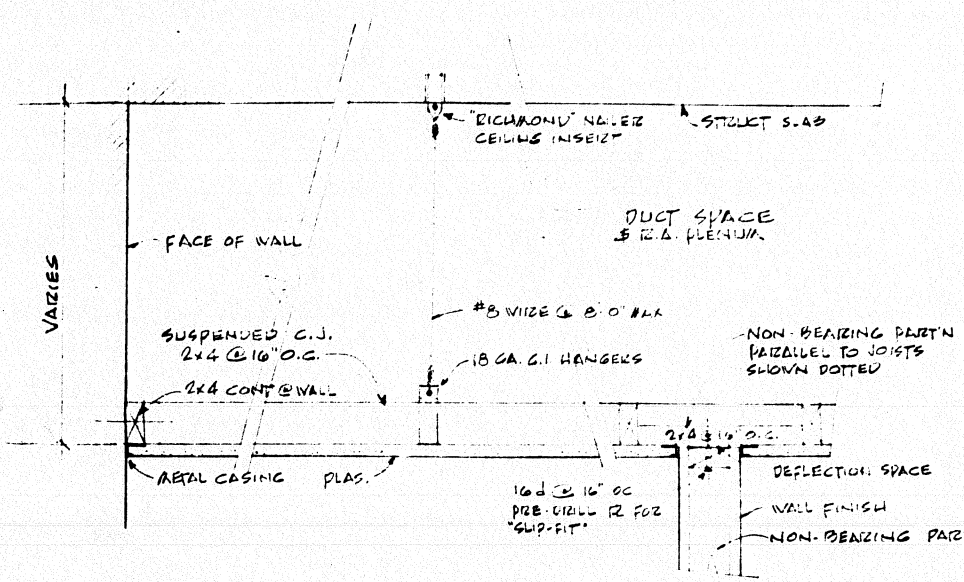 "RICHMOND" NAILER
CEILING INSERT
STRUCT SLAB
DUCT SPACE
& R.A. PLENUM
FACE OF WALL
VARIES
#8 WIRE @ 8'-0" MAX
SUSPENDED C.J.
2x4 @ 16" O.C.
18 GA. G.I HANGERS
NON-BEARING PART'N
PARALLEL TO JOISTS
SHOWN DOTTED
2x4 CONT @ WALL
2x4 @ 16" O.C.
METAL CASING
PLAS.
DEFLECTION SPACE
16d @ 16" OC
PRE-DRILL FOR
"SLIP-FIT"
WALL FINISH
NON-BEARING PAR